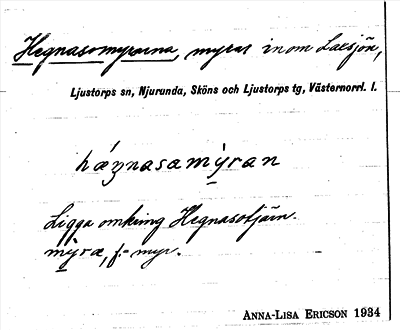 Hegnasomyrarna, myrar inom Laxsjön,
Ljustorps sn, Njurunda, Sköns och Ljustorps tg, Västernorrl. l.
hágnasamỳran
Ligga omkring Hegnasotjärn.
mỳra, f. = myr.
ANNA-LISA ERICSON 1934